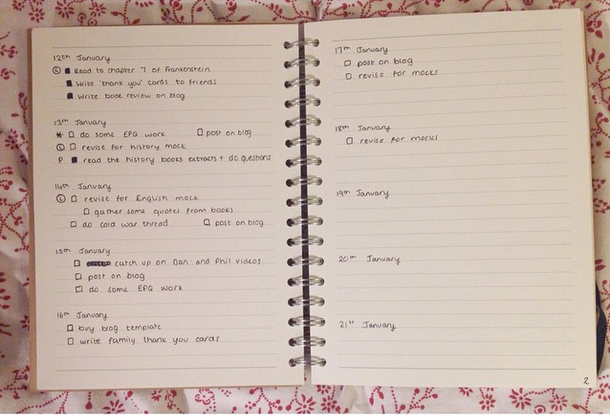 12th January
L Read to chapter 7 of Frankenstein
Write 'thank you' cards to friends
Write book review on blog
13th January
* do some EPQ work post on blog
L revise for history mock
P read the history books extracts + do questions
14th January
L revise for English mock
gather some quotes from books
do cold war thread post on blog
15th January
catch up on Dan and Phil videos
post on blog
do some EPQ work
16th January
buy blog template
write family thank you cards
17th January
post on blog
revise for mocks
18th January
revise for mocks
19th January
20th January
21st January
2